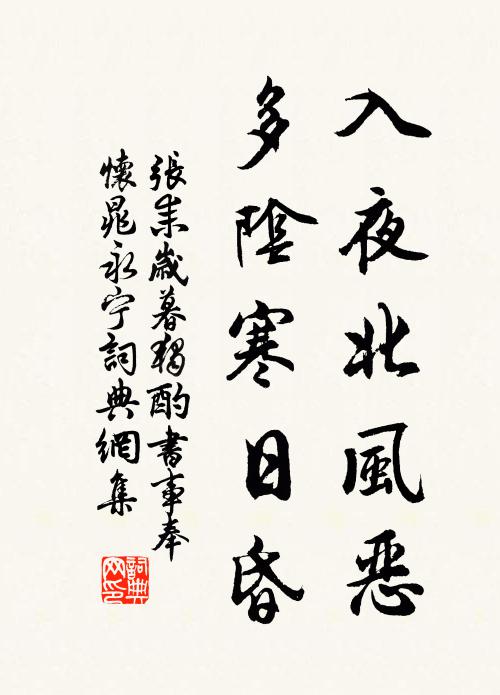 入夜北風惡
多陰寒日昏
張耒歲暮獨酌書事奉
懷晁永宁詞典網集
詞典
网印